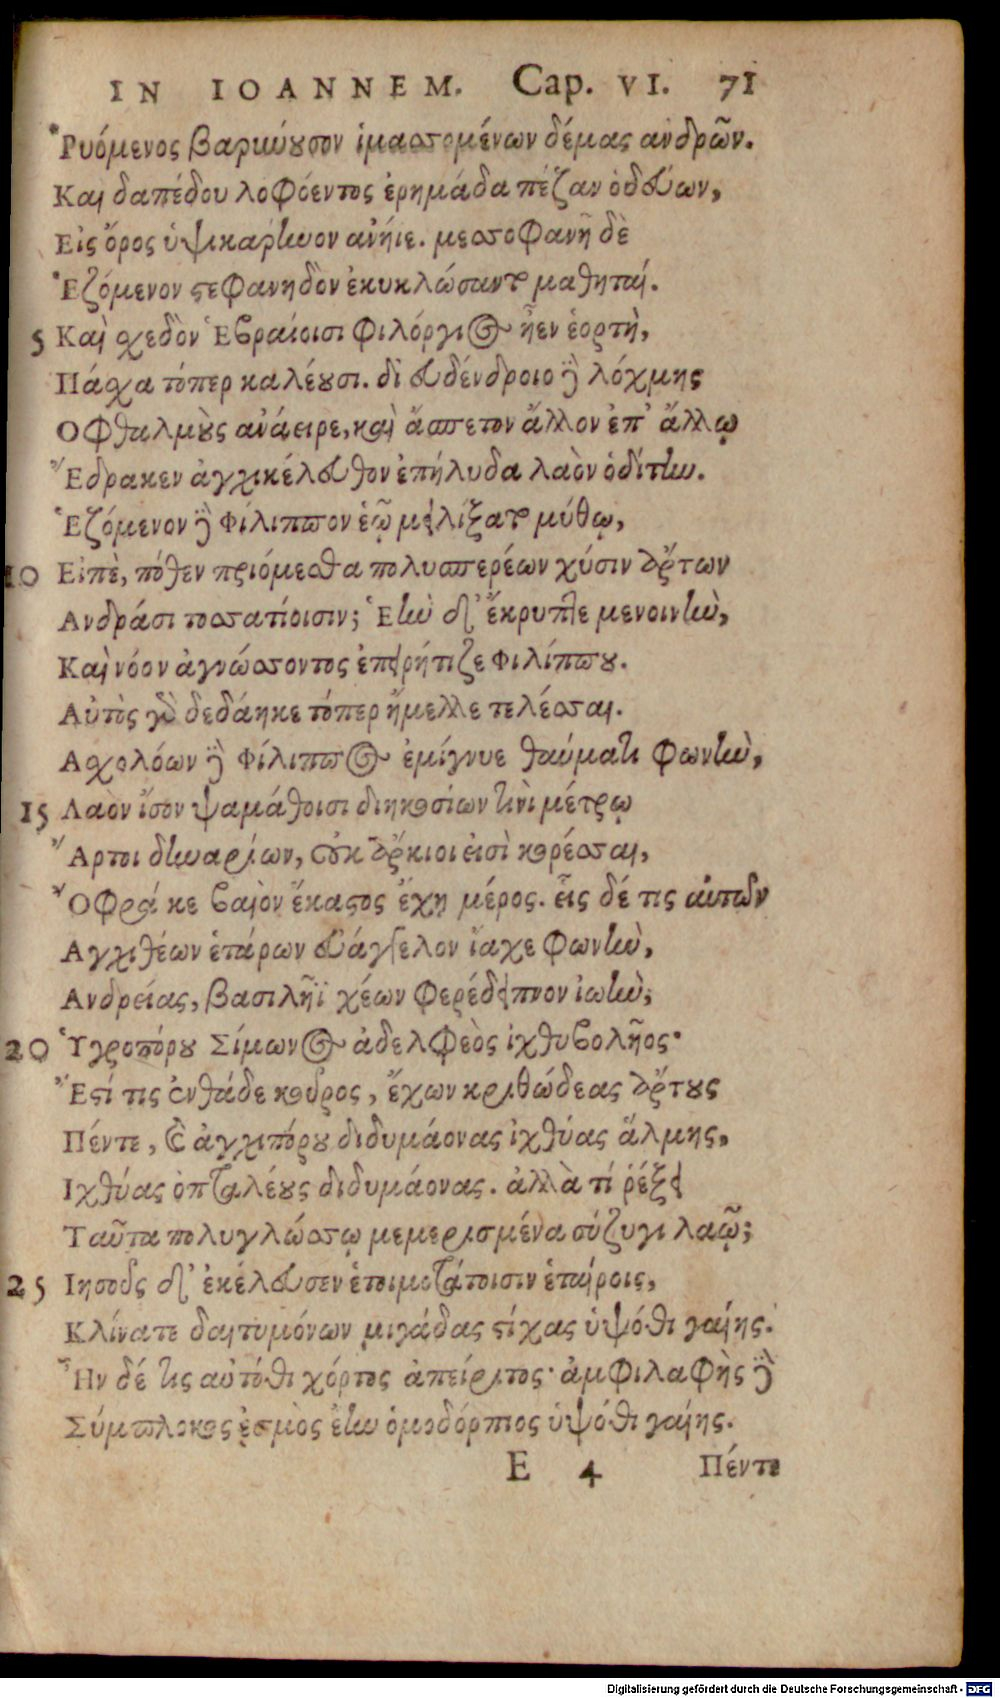 IN IOANNEM. Cap. VI. 71
Ῥυόμενος βαρύνουσον ἱμασσομένων δέμας ἀνδρῶν.
Καὶ δαπέδου λοφόεντος ἐρημάδα πέζαν ὁδεύων,
Εἰς ὄρος ὑψικάρηνον ἀνήιε. μεσσοφανῆ δὲ
Ἑζόμενον στεφανηδὸν ἐκυκλώσαντο μαθηταί.
5 Καὶ σχεδὸν Ἑβραίοισι φιλόργιος ἦεν ἑορτὴ,
Πάσχα τόπερ καλέουσι. δι’ εὐδένδροιο δὲ λόχμης
Οφθαλμοὺς ἀνάειρε, καὶ ἄσπετον ἄλλον ἐπ’ ἄλλῳ
Ἔδρακεν ἀγχικέλευθον ἐπήλυδα λαὸν ὁδίτην.
Ἑζόμενον δὲ Φίλιππον ἑῷ μειλίξατο μύθῳ,
10 Εἰπὲ, πόθεν πριόμεσθα πολυσπερέων χύσιν ἄρτων
Ανδράσι τοσσατίοισιν; Ἑὴν δ’ ἔκρυπτε μενοινὴν,
Καὶ νόον ἀγνώσσοντος ἐπειρήτιζε Φιλίππου.
Αὐτὸς γὰρ δεδάηκε τόπερ ἤμελλε τελέσσαι.
Ασχολόων δὲ Φίλιππος ἐμίγνυε θαύματι φωνὴν,
15 Λαὸν ἴσον ψαμάθοισι διηκοσίων τινὶ μέτρῳ
Ἄρτοι δηναρίων, οὐκ ἄρκιοι εἰσὶ κορέσσαι,
Ὄφρά κε βαιὸν ἕκαστος ἔχῃ μέρος. εἷς δέ τις αὐτῶν
Αγχιθέων ἑτάρων εὐάγγελον ἴαχε φωνὴν,
Ανδρείας, βασιλῆϊ χέων φερέδειπνον ἰωὴν,
20 Ὑγροπόρου Σίμωνος ἀδελφεὸς ἰχθυβολῆος·
Ἔστί τις ἐνθάδε κοῦρος, ἔχων κριθώδεας ἄρτους
Πέντε, καὶ ἀγχιπόρου διδυμάονας ἰχθύας ἅλμης,
Ιχθύας ὀπταλέους διδυμάονας. ἀλλὰ τί ῥέξει
Ταῦτα πολυγλώσσῳ μεμερισμένα σύζυγι λαῷ;
25 Ιησοῦς δ’ ἐκέλευσεν ἑτοιμοτάτοισιν ἑταίροις,
Κλίνατε δαιτυμόνων μιγάδας στίχας ὑψόθι γαίης.
Ἦν δέ τις αὐτόθι χόρτος ἀπείριτος· ἀμφιλαφὴς δὲ
Σύμπλοκος ἑσμὸς ἔην ὁμοδόρπιος ὑψόθι γαίης.
E 4 Πέντε
Digitalisierung gefördert durch die Deutsche Forschungsgemeinschaft - DFG